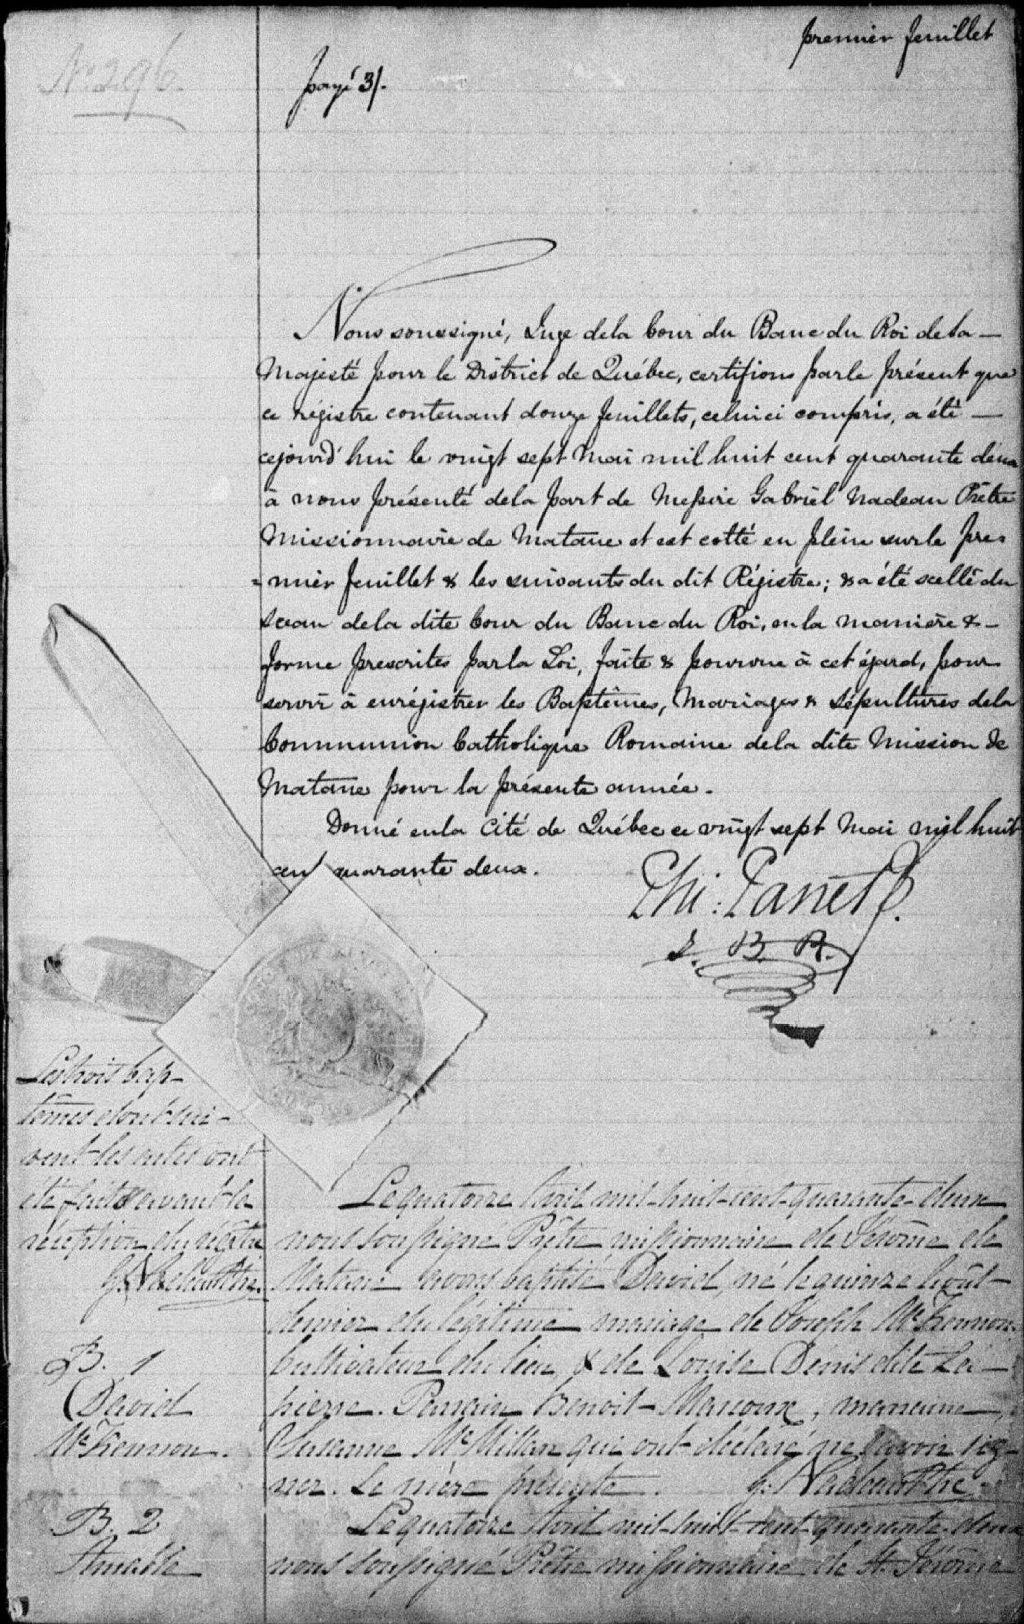 premier feuillet
No. 296.
payé 3/.
Nous soussigné, Juge dela Cour du Banc du Roi de Sa
Majesté pour le District de Québec, certifions parle présent que
ce régistre contenant douze feuillets, celuici compris, a été
cejourd'hui le vingt sept Mai mil huit cent quarante deux
à nous présenté dela part de Messire Gabriel Nadeau Prêtre
Missionnaire de Matane et est cotté en plein surle pre=
=mier feuillet & les suivants du dit Régistre; & a été scellé du
Sceau dela dite Cour du Banc du Roi, enla manière &
forme prescrites parla Loi, faite & pourvue à cet égard, pour
servir à enrégistrer les Baptêmes, Mariages & Sépultures dela
Communion Catholique Romaine dela dite Mission de
Matane pour la présente année.
Donné enla Cité de Québec ce vingt sept Mai mil huit
cent quarante deux.
Phi: Panet J.
J. B. R.
Les trois bap-
têmes dont sui-
vent les actes ont
été faits avant la
réception du régître
G. Nadeau Ptre.
B. 1
David
McKennon.
Le quatorze Avril mil-huit-cent-quarante-deux
nous soussigné Prêtre missionnaire de St. Jérôme de
Matane avons baptisé David, né le quinze Août
dernier du légitime mariage de Joseph McKennon
Cultivateur du lieu & de Louise Denis dite La-
pierre. Parrain Benoit Marcoux, marraine
Susanne McMillan qui ont déclaré ne savoir sig-
ner. Le père présent. G. Nadeau Ptre.
B. 2
Amable
Le quatorze Avril mil-huit-cent-quarante-deux
nous soussigné Prêtre missionnaire de St. Jérôme